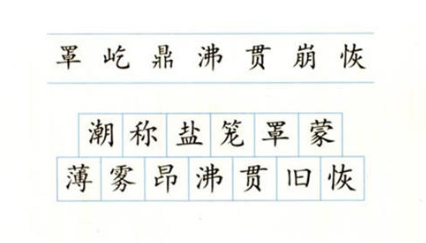 罩 屹 鼎 沸 贯 崩 恢
潮 称 盐 笼 罩 蒙
薄 雾 昂 沸 贯 旧 恢